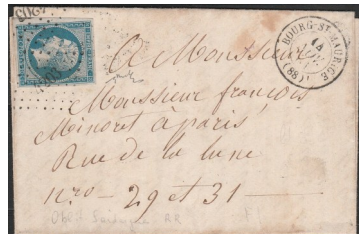 BOURG-ST-MAURICE
(88)
A Monsieur
Monsieur françois
Minoret à paris
Rue de la lune
nro - 29 et 31